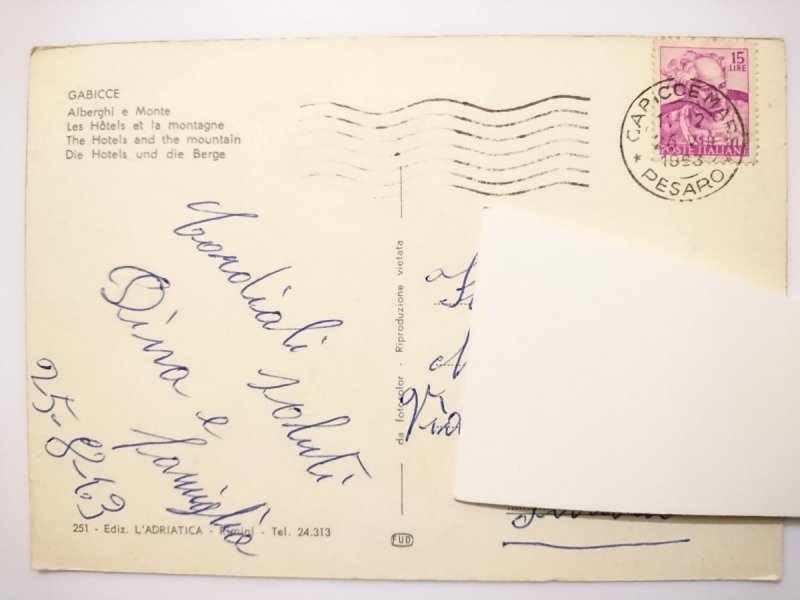 GABICCE
Alberghi e Monte
Les Hôtels et la montagne
The Hotels and the mountain
Die Hotels und die Berge
15
LIRE
POSTE ITALIANE
GABICCE MARE
1963
* PESARO *
Cordiali saluti
Dina e famiglia
25-8-63
Via
da fotocolor - Riproduzione vietata
251 - Ediz. L'ADRIATICA - Rimini - Tel. 24.313
FUD